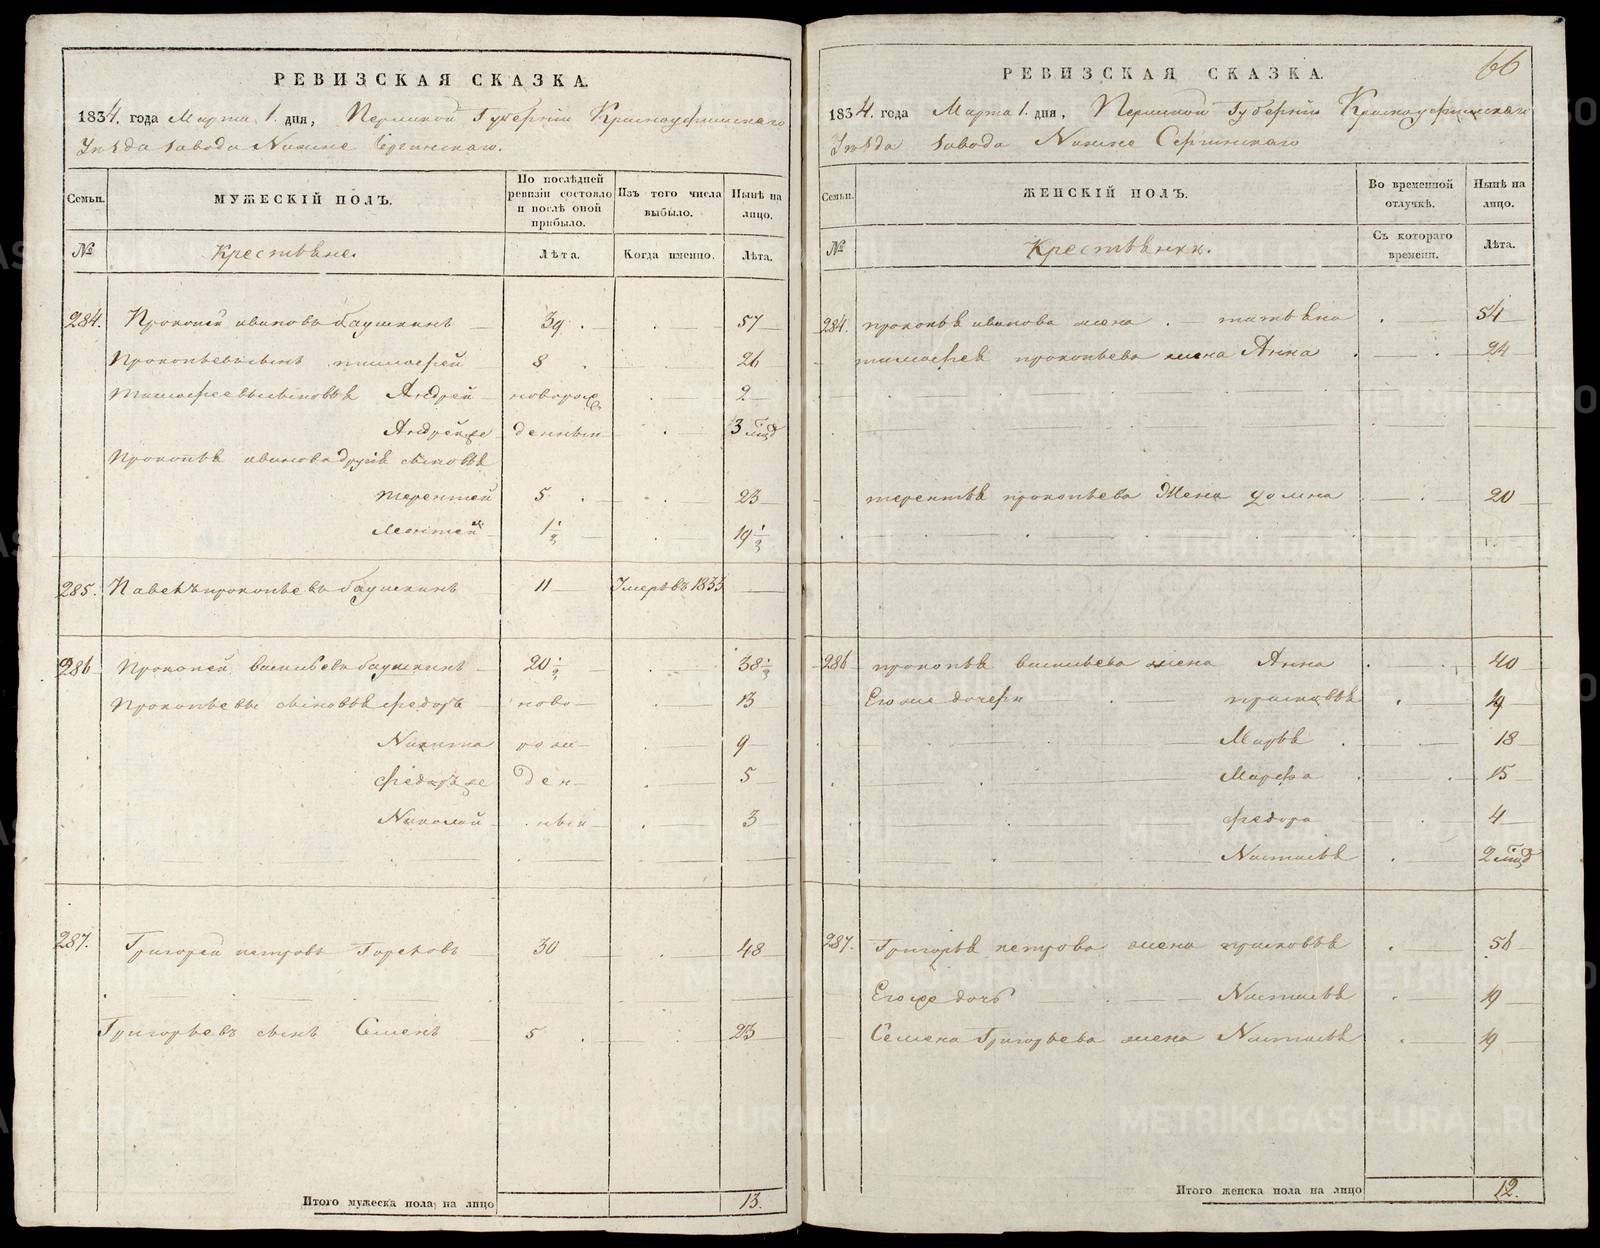 РЕВИЗСКАЯ СКАЗКА.
1834. года Марта 1. дня, Пермской Губернiи Красноуфимскаго
Уѣзда завода Нижне Сергинскаго.
Семьи.
МУЖЕСКIЙ ПОЛЪ.
По последней ревизiи состояло и послѣ оной прибыло.
Изъ того числа выбыло.
Нынѣ на лицо.
№
Крестьѣне.
Лѣта.
Когда именно.
Лѣта.
284. Прокопей ивановъ баушкинъ 39. 57
Прокопьевъ сынъ тимофей 8 26
Тимофеевы сыновьѣ Андрей новорож 2
Андрей же денныи 3 мѣд
Прокопьѣ иванова другiе сыновьѣ
терентей 5. 23
Леонтей 1½ 19½
285. Павелъ прокопьевъ баушкинъ 11 Умеръ въ 1833
286 Прокопей васильевъ баушкинъ 20½ 38½
Прокопьевы сыновьѣ федоръ ново 13
Никита рож 9
федоръ же ден 5
Николай ныи 3
287. Григорей петровъ Гореховъ 30 48
Григорьевъ сынъ Семенъ 5 23
Итого мужеска пола на лицо 13.
66
РЕВИЗСКАЯ СКАЗКА.
1834. года Марта 1. дня, Пермской Губернiи Красноуфимскаго
Уѣзда завода Нижне Сергинскаго
Семьи.
ЖЕНСКIЙ ПОЛЪ.
Во временной отлучкѣ.
Нынѣ на лицо.
№
Крестьѣнки.
Съ котораго времени.
Лѣта.
284. прокопьѣ иванова жена татьѣна 54
тимофеѣ прокопьева жена Анна 24
терентьѣ прокопьева Жена домна 20
286 прокопьѣ васильева жена Анна 40
Его же дочери прасковьѣ 19
Марьѣ 18
Марфа 15
федора 4
Настасьѣ 2 мѣд
287. Григорьѣ петрова жена прасковьѣ 56
Его же дочь Настасьѣ 19
Семена Григорьева жена Настасьѣ 19
Итого женска пола на лицо 12.
METRIKI.GASO-URAL.RU